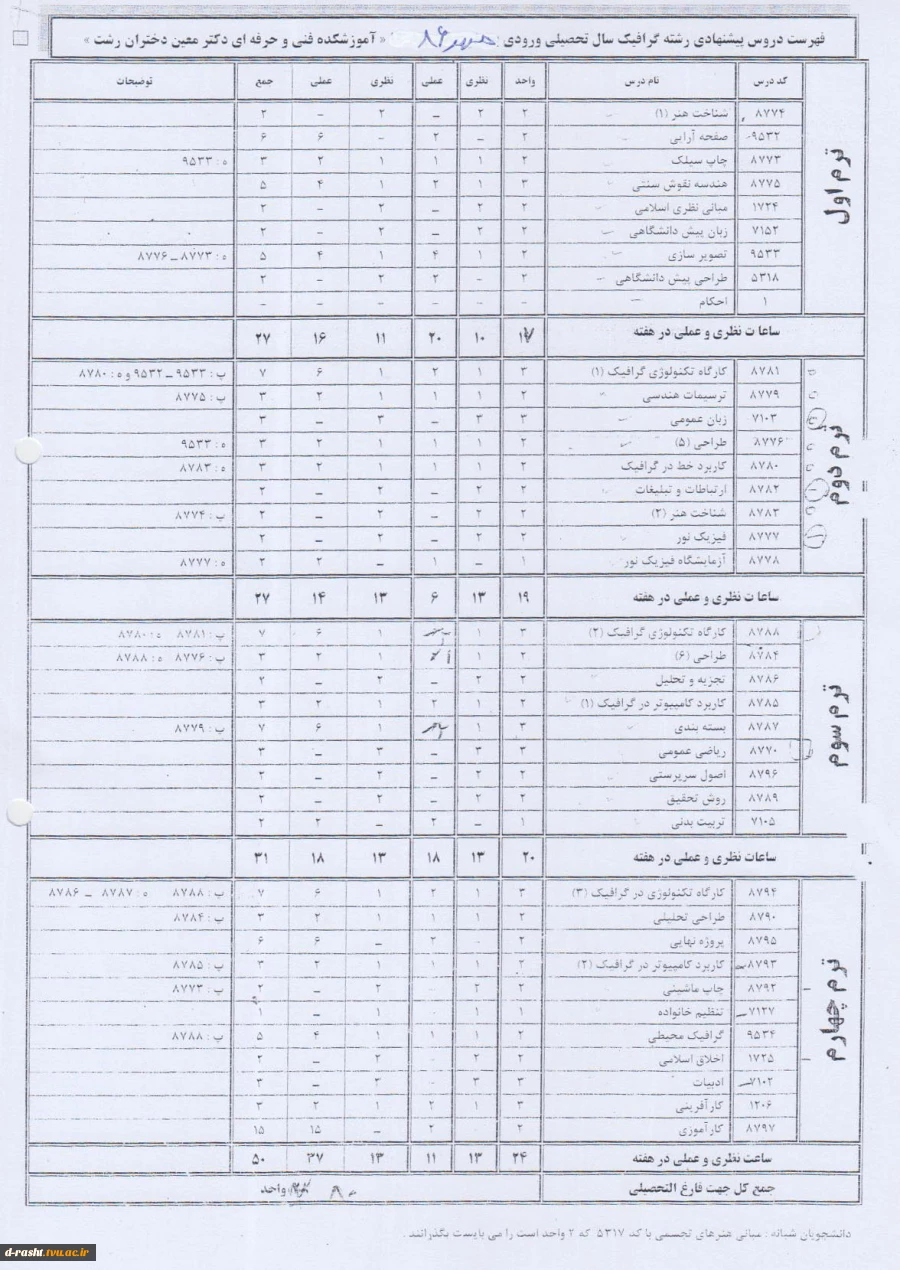 فهرست دروس پیشنهادی رشته گرافیک سال تحصیلی ورودی : مهر ۸۶ « آموزشکده فنی و حرفه ای دکتر معین دختران رشت »
کد درس نام درس واحد نظری عملی نظری عملی جمع توضیحات
ترم اول
۸۷۷۴ شناخت هنر (۱) ۲ ۲ – ۲ – ۲
۹۵۳۲ صفحه آرایی ۲ – ۲ – ۶ ۶
۸۷۷۳ چاپ سیلک ۲ ۱ ۱ ۱ ۲ ۳ ه : ۹۵۳۳
۸۷۷۵ هندسه نقوش سنتی ۳ ۱ ۲ ۱ ۴ ۵
۱۷۲۴ مبانی نظری اسلامی ۲ ۲ – ۲ – ۲
۷۱۵۲ زبان پیش دانشگاهی ۲ ۲ – ۲ – ۲
۹۵۳۳ تصویر سازی ۲ ۱ ۴ ۱ ۴ ۵ ه : ۸۷۷۳ – ۸۷۷۶
۵۳۱۸ طراحی پیش دانشگاهی ۲ – ۲ ۲ – ۲
۱ احکام – – – – – –
ساعات نظری و عملی در هفته ۱۷ ۱۰ ۲۰ ۱۱ ۱۶ ۲۷
ترم دوم
۸۷۸۱ کارگاه تکنولوژی گرافیک (۱) ۳ ۱ ۲ ۱ ۶ ۷ ب : ۹۵۳۳ – ۹۵۳۲ و ه : ۸۷۸۰
۸۷۷۹ ترسیمات هندسی ۲ ۱ ۱ ۱ ۲ ۳ ب : ۸۷۷۵
۷۱۰۳ زبان عمومی ۳ ۳ – ۳ – ۳
۸۷۷۶ طراحی (۵) ۲ ۱ ۱ ۱ ۲ ۳ ه : ۹۵۳۳
۸۷۸۰ کاربرد خط در گرافیک ۲ ۱ ۱ ۱ ۲ ۳ ه : ۸۷۸۳
۸۷۸۲ ارتباطات و تبلیغات ۲ ۲ – ۲ – ۲
۸۷۸۳ شناخت هنر (۲) ۲ ۲ – ۲ – ۲ ب : ۸۷۷۴
۸۷۷۷ فیزیک نور ۲ ۲ – ۲ – ۲
۸۷۷۸ آزمایشگاه فیزیک نور ۱ – ۱ – ۲ ۲ ه : ۸۷۷۷
ساعات نظری و عملی در هفته ۱۹ ۱۳ ۶ ۱۳ ۱۴ ۲۷
ترم سوم
۸۷۸۸ کارگاه تکنولوژی گرافیک (۲) ۳ ۱ ۱ ۶ ۷ ب : ۸۷۸۱ ه : ۸۷۸۰
۸۷۸۴ طراحی (۶) ۲ ۱ ۱ ۲ ۳ ب : ۸۷۷۶ ه : ۸۷۸۸
۸۷۸۶ تجزیه و تحلیل ۲ ۲ – ۲ – ۲
۸۷۸۵ کاربرد کامپیوتر در گرافیک (۱) ۲ ۱ ۲ ۱ ۲ ۳
۸۷۸۷ بسته بندی ۳ ۱ ۱ ۶ ۷ ب : ۸۷۷۹
۸۷۷۰ ریاضی عمومی ۳ ۳ – ۳ – ۳
۸۷۹۶ اصول سرپرستی ۲ ۲ – ۲ – ۲
۸۷۸۹ روش تحقیق ۲ ۲ – ۲ – ۲
۷۱۰۵ تربیت بدنی ۱ – ۲ – ۲ ۲
ساعات نظری و عملی در هفته ۲۰ ۱۳ ۱۸ ۱۳ ۱۸ ۳۱
ترم چهارم
۸۷۹۴ کارگاه تکنولوژی در گرافیک (۳) ۳ ۱ ۲ ۱ ۶ ۷ ب : ۸۷۸۸ ه : ۸۷۸۷ – ۸۷۸۶
۸۷۹۰ طراحی تحلیلی ۲ ۱ ۱ ۱ ۲ ۳ ب : ۸۷۸۴
۸۷۹۵ پروژه نهایی ۲ ۲ – ۶ ۶
۸۷۹۳ کاربرد کامپیوتر در گرافیک (۲) ۲ ۱ ۱ ۱ ۲ ۳ ب : ۸۷۸۵
۸۷۹۲ چاپ ماشینی ۲ ۲ ۲ – ۲ ب : ۸۷۷۳
۷۱۲۷ تنظیم خانواده ۱ ۱ ۱ – ۱
۹۵۳۴ گرافیک محیطی ۲ ۱ ۱ ۱ ۴ ۵ ب : ۸۷۸۸
۱۷۲۵ اخلاق اسلامی ۲ ۲ ۲ – ۲
۷۱۰۲ ادبیات ۳ ۳ ۳ – ۳
۱۲۰۶ کارآفرینی ۳ ۱ ۲ ۱ ۲ ۳
۸۷۹۷ کارآموزی ۲ ۲ – ۱۵ ۱۵
ساعت نظری و عملی در هفته ۲۴ ۱۳ ۱۱ ۱۳ ۳۷ ۵۰
جمع کل جهت فارغ التحصیلی ۸۰ واحد
دانشجویان شبانه : مبانی هنرهای تجسمی با کد ۵۳۱۷ که ۲ واحد است را می بایست بگذرانند .
d-rasht.tvu.ac.ir